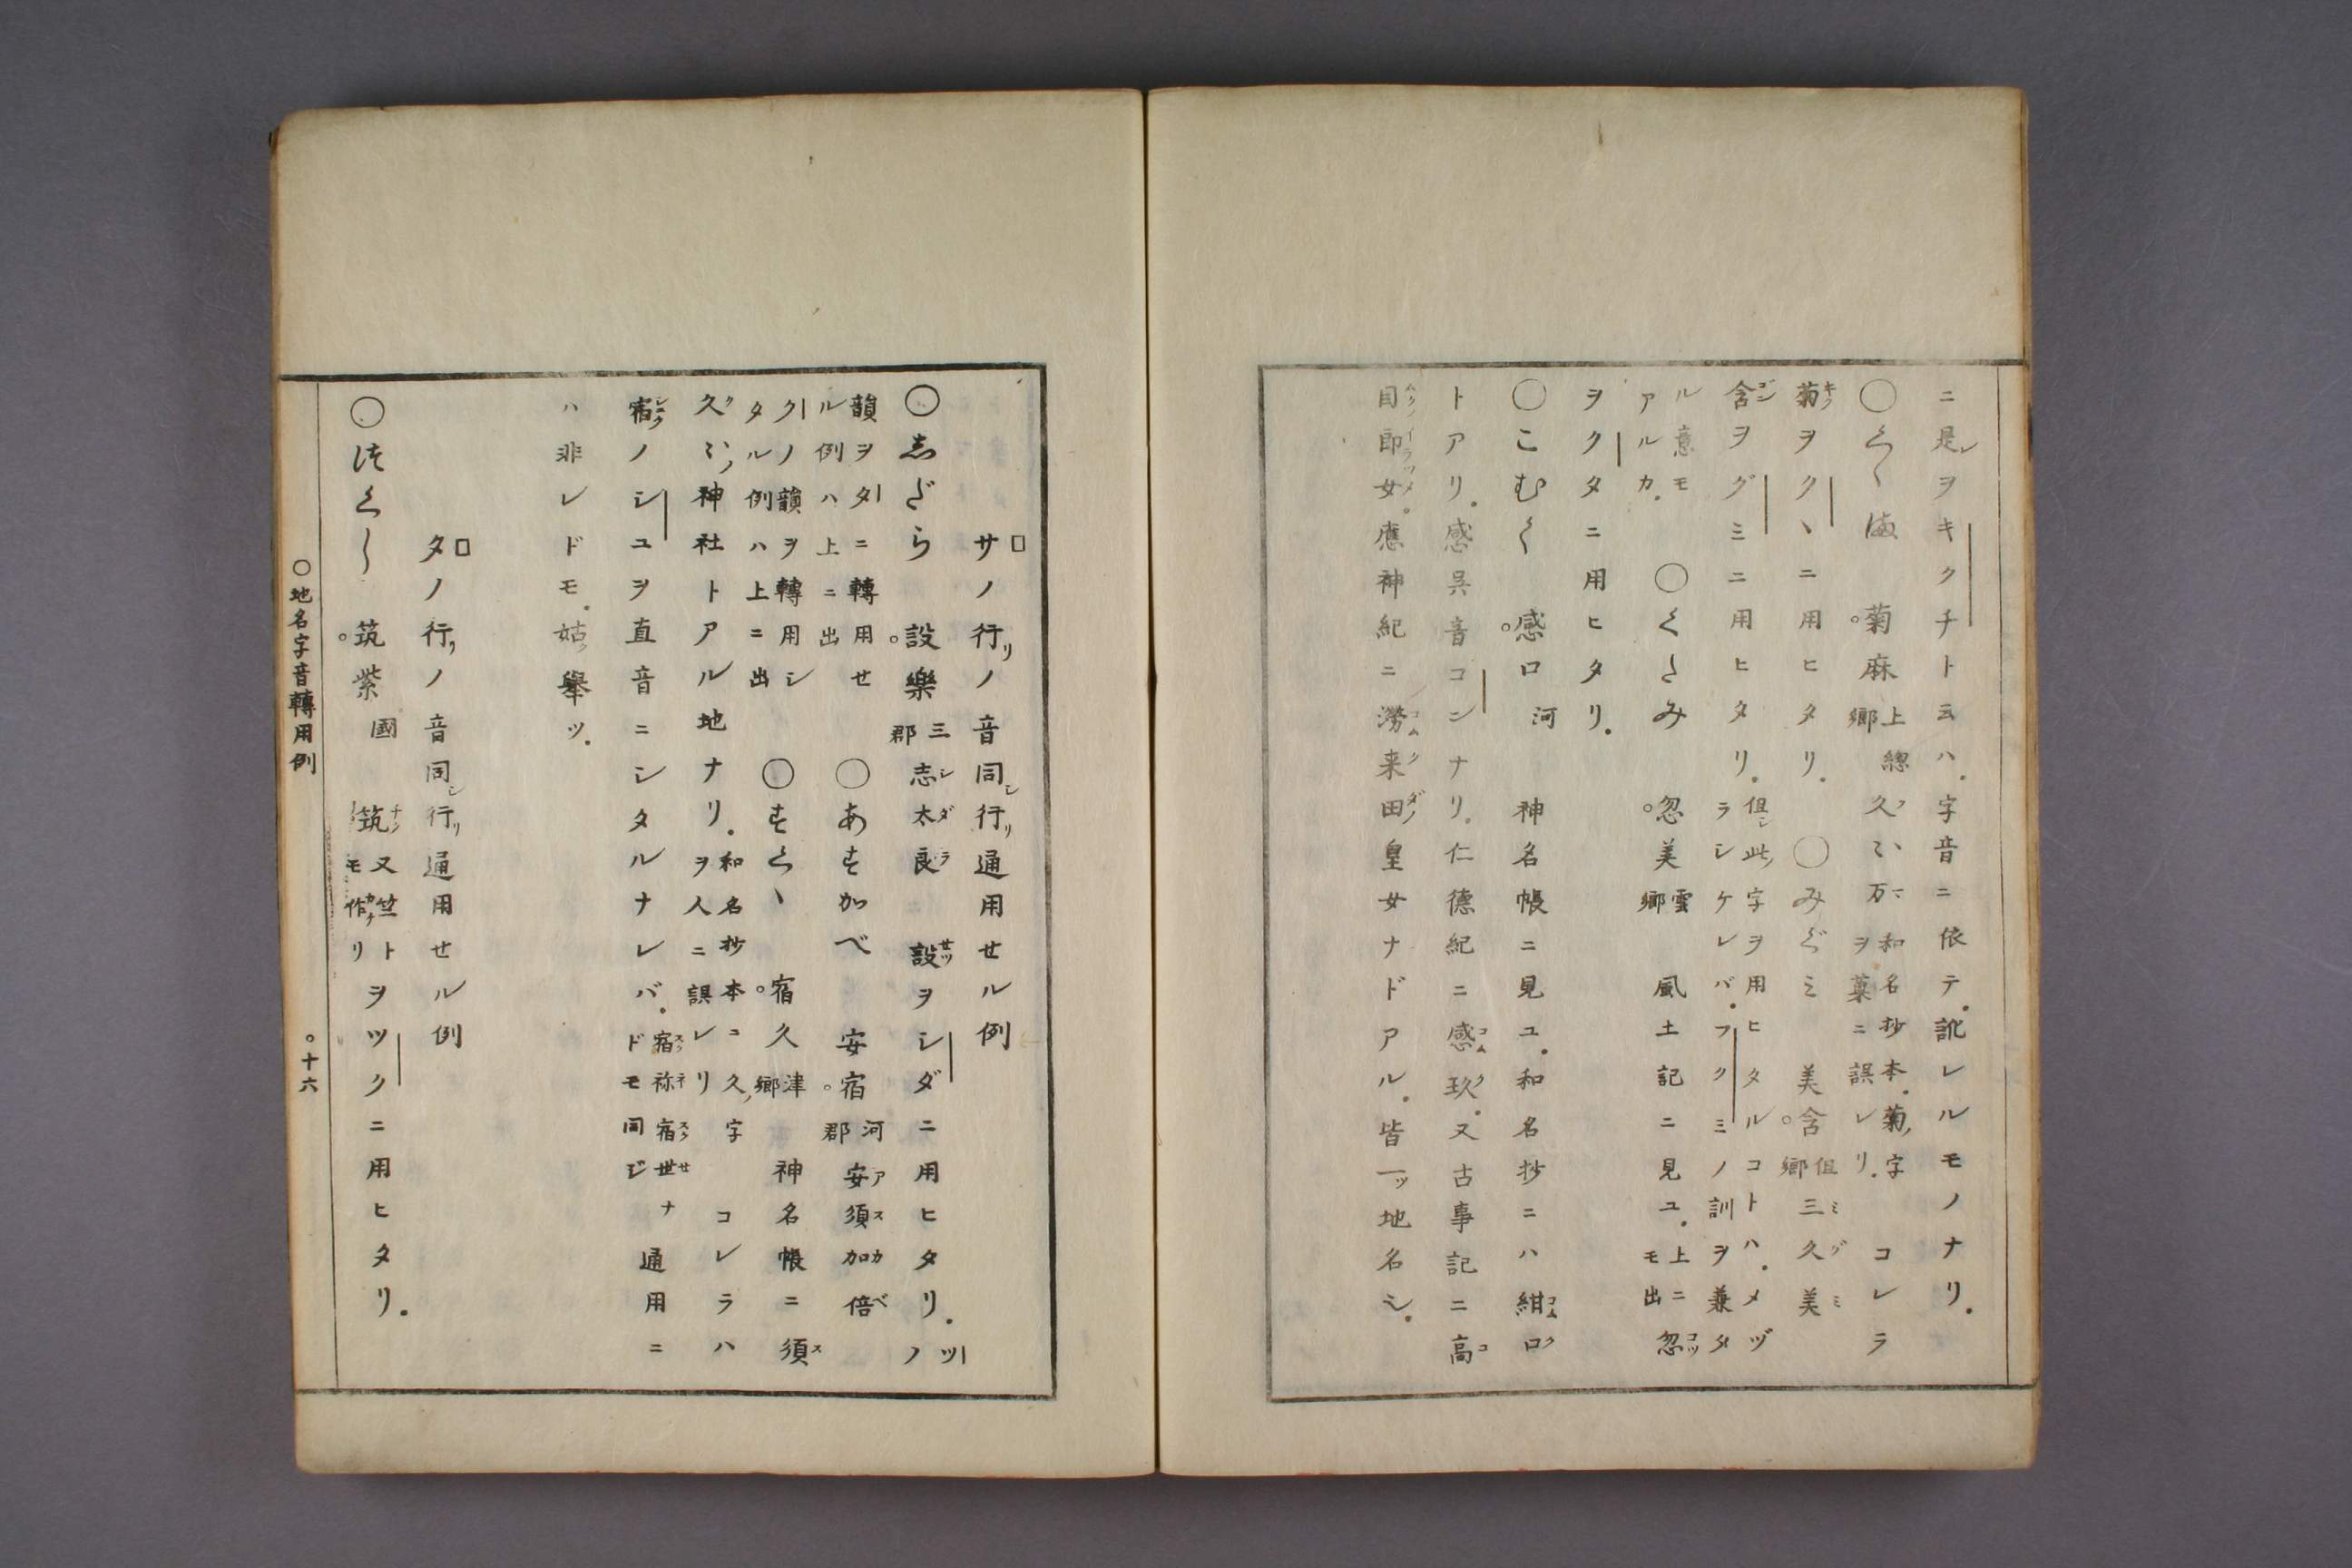 ニ是レヲキクチト云ハ。字音ニ依テ。訛レルモノナリ。
○くゝま 菊麻 上總郷 久々万 和名抄本。菊ノ字ヲ菓ニ誤レリ。 コレラ
菊ヲクヽニ用ヒタリ。 ○みぐミ 美含 但郷 三久美
含ヲグミニ用ヒタリ。 但シ此ノ字ヲ用ヒタルコトハ。メヅラシケレバ。フクミノ訓ヲ兼タ
ル意モアルカ。 ○くたみ 忽美 雲郷 風土記ニ見ユ。上ニモ出 忽
ヲクタニ用ヒタリ。
○こむく 感口 河 神名帳ニ見ユ。和名抄ニハ紺口
トアリ。感呉音コンナリ。仁德紀ニ感玖。又古事記ニ高
目郎女。應神紀ニ澇来田皇女ナドアル。皆一ツ地名シ。
サノ行リノ音同シ行リ通用せル例
○志だら 設樂 三郡 志太良 設ヲシダニ用ヒタリ。ツノ
韻ヲタニ轉用せル例ハ上ニ出 ○あすかべ 安宿 河郡 安須加倍
クノ韻ヲ轉用シタル例ハ上ニ出 ○すくヽ 宿久 津郷 神名帳ニ須
久々ノ神社トアル地ナリ。 和名抄本ニ久ノ字ヲ人ニ誤レリ コレラハ
宿ノシユヲ直音ニシタルナレバ。 宿祢宿世ナドモ同ジ 通用ニ
ハ非レドモ。姑ク擧ツ。
タノ行リノ音同シ行リ通用せル例
○つくし 筑紫 國 筑 又竺トモ作リ ヲツクニ用ヒタリ。
○地名字音轉用例 ○十六